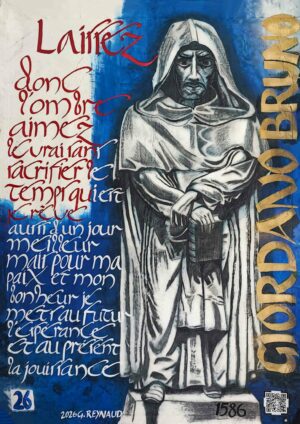 Laissez
donc
l'ombre
aimez
le vrai sans
sacrifier le
temps qui est
je rêve
aussi d'un jour
meilleur
mais pour ma
paix et mon
bonheur je
mets au futur
l'espérance
et au présent
la jouissance
GIORDANO BRUNO
26
2026 G. REYNAUD
1586